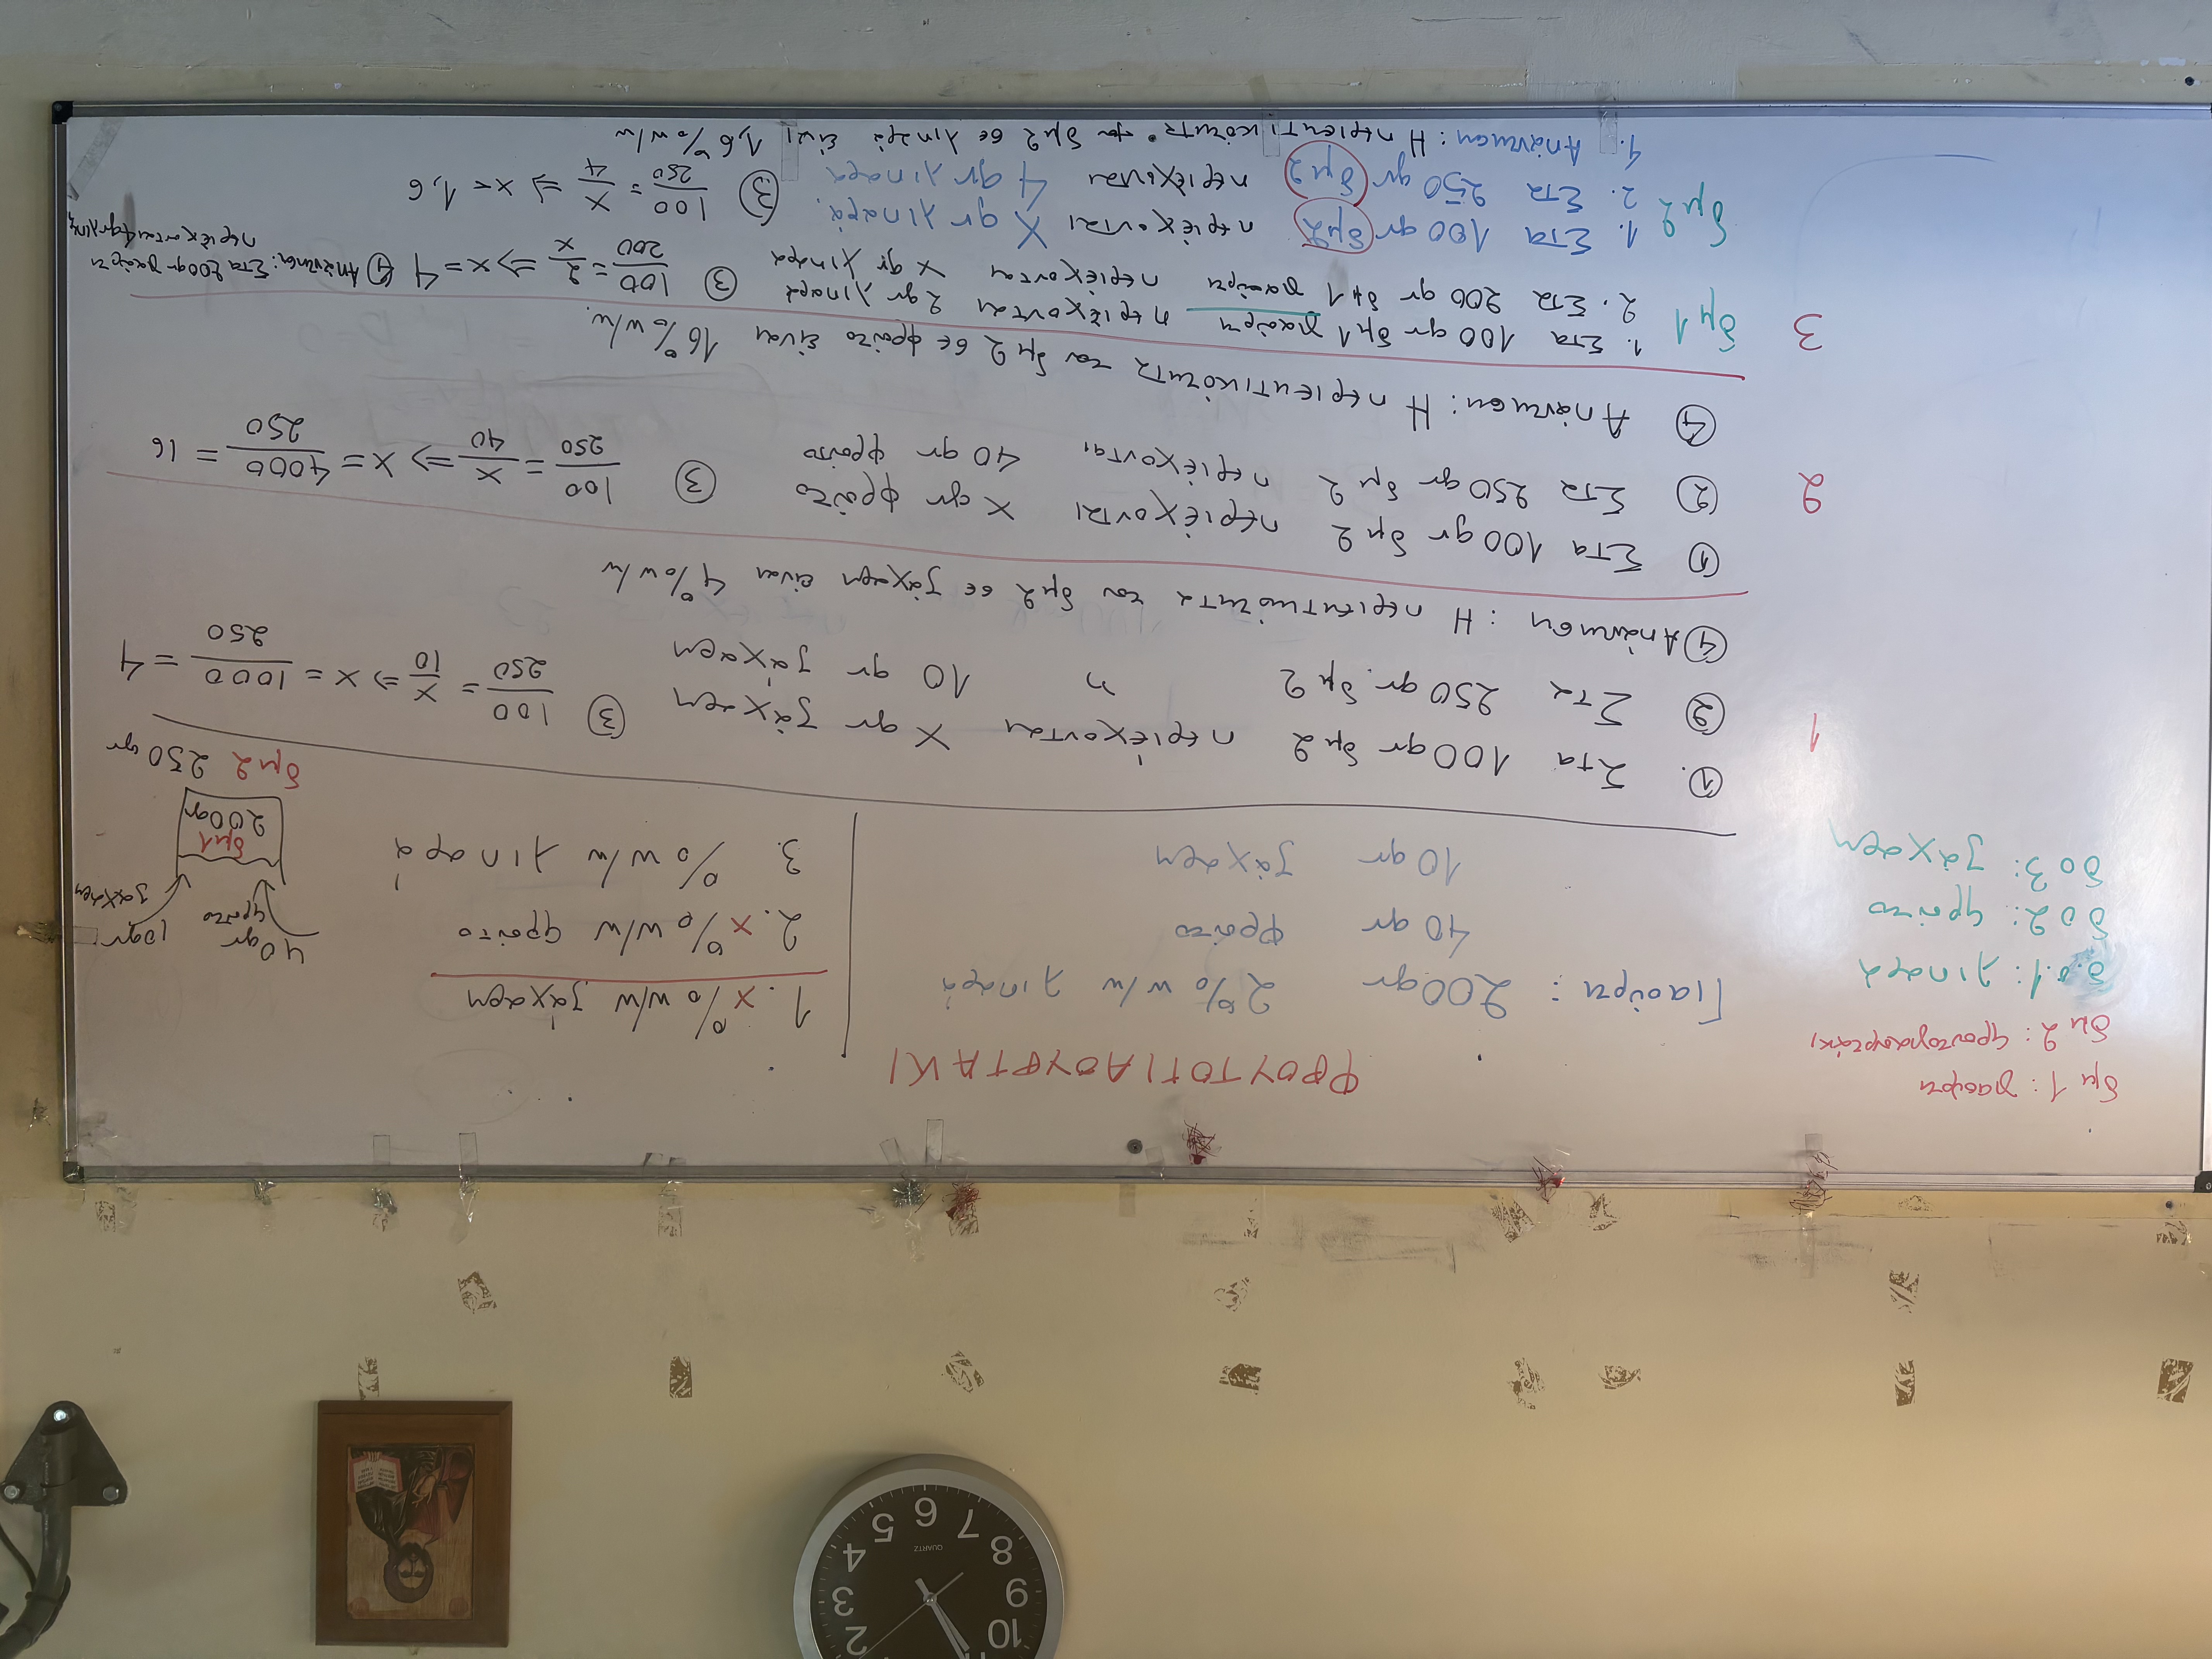 ΦΡΟΥΤΟΓΙΑΟΥΡΤΑΚΙ
δμ 1: γιαούρτι
δμ 2: φρουτογιαουρτάκι
δ.ο.1: λιπαρά
δο2: φρούτο
δο3: ζάχαρη
Γιαούρτι: 200gr 2% w/w λιπαρά
40 gr φρούτο
10 gr ζάχαρη
1. x % w/w ζάχαρη
2. x % w/w φρούτο
3. % w/w λιπαρά
40gr
φρούτο
10gr
ζάχαρη
δμ1
200gr
δμ2 250 gr
1
① Στα 100 gr δμ 2 περιέχονται x gr ζάχαρη
② Στα 250 gr. δμ 2 " 10 gr ζάχαρη
③ 100/250 = x/10 => x = 1000/250 = 4
④ Απάντηση: Η περιεκτικότητα του δμ2 σε ζάχαρη είναι 4% w/w
2
① Στα 100 gr δμ 2 περιέχονται x gr φρούτο
② Στα 250 gr δμ 2 περιέχονται 40 gr φρούτο
③ 100/250 = x/40 => x = 4000/250 = 16
④ Απάντηση: Η περιεκτικότητα του δμ 2 σε φρούτο είναι 16% w/w.
3
δμ1
1. Στα 100 gr δμ1 γιαούρτι περιέχονται 2 gr λιπαρά
2. Στα 200 gr δμ1 γιαούρτι περιέχονται x gr λιπαρά
③ 100/200 = 2/x => x = 4
④ Απάντηση: Στα 200gr γιαούρτι
περιέχονται 4gr λιπ.
δμ2
1. Στα 100 gr δμ2 περιέχονται X gr λιπαρά.
2. Στα 250 gr δμ2 περιέχονται 4 gr λιπαρά
③ 100/250 = x/4 => x = 1,6
4. Απάντηση: Η περιεκτικότητα του δμ2 σε λιπαρά είναι 1,6% w/w
QUARTZ
10
9
8
7
6
5
4
3
2